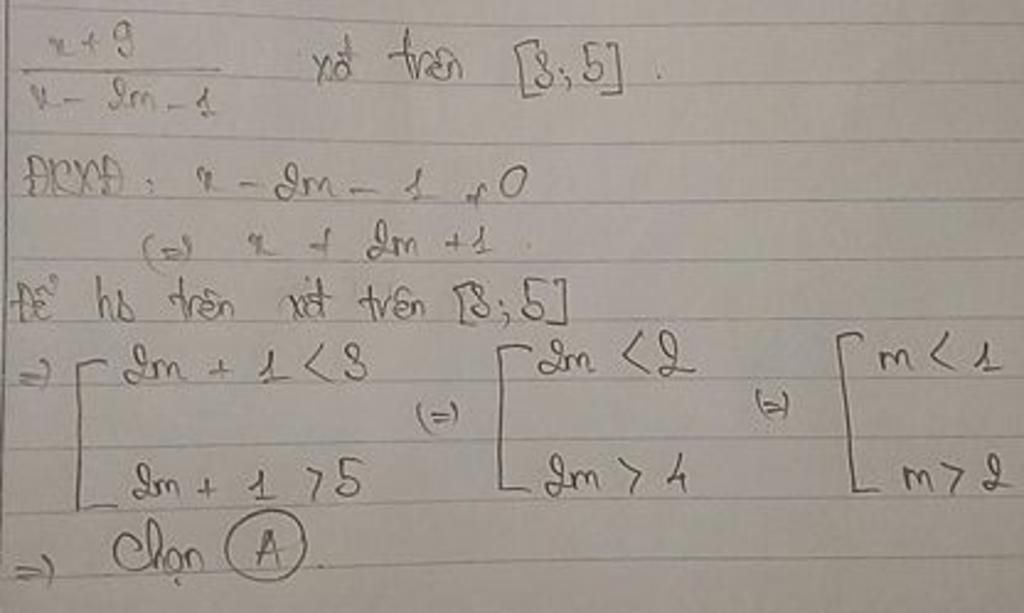 x + 9
x - 2m - 1 xđ trên [3; 5].
ĐKXĐ: x - 2m - 1 ≠ 0
(=) x ≠ 2m + 1.
Để hs trên xđ trên [3; 5]
=> [ 2m + 1 < 3 (=) [ 2m < 2 (=) [ m < 1
2m + 1 > 5 2m > 4 m > 2
=> Chọn A.